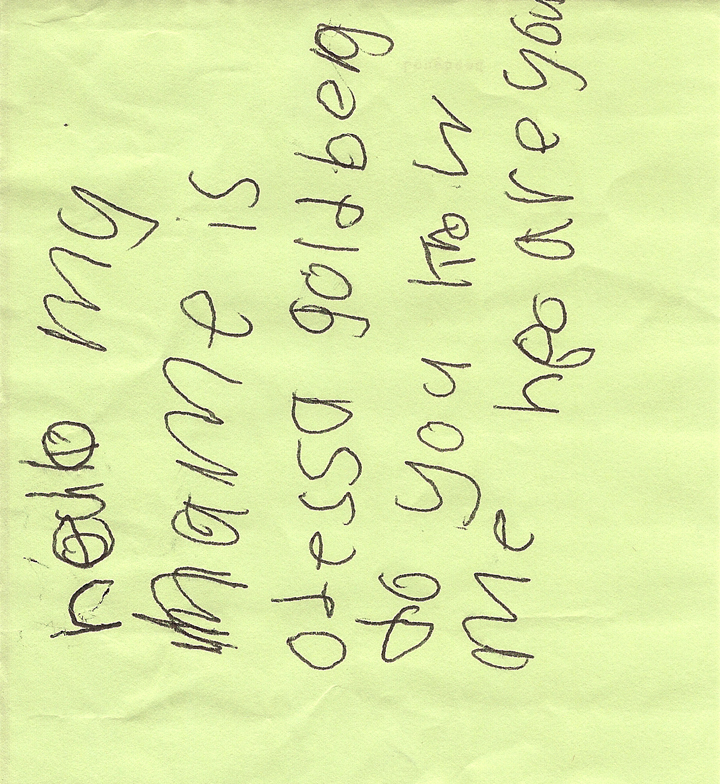 hello my
name is
odessa goldberg
do you know
me hoo are you